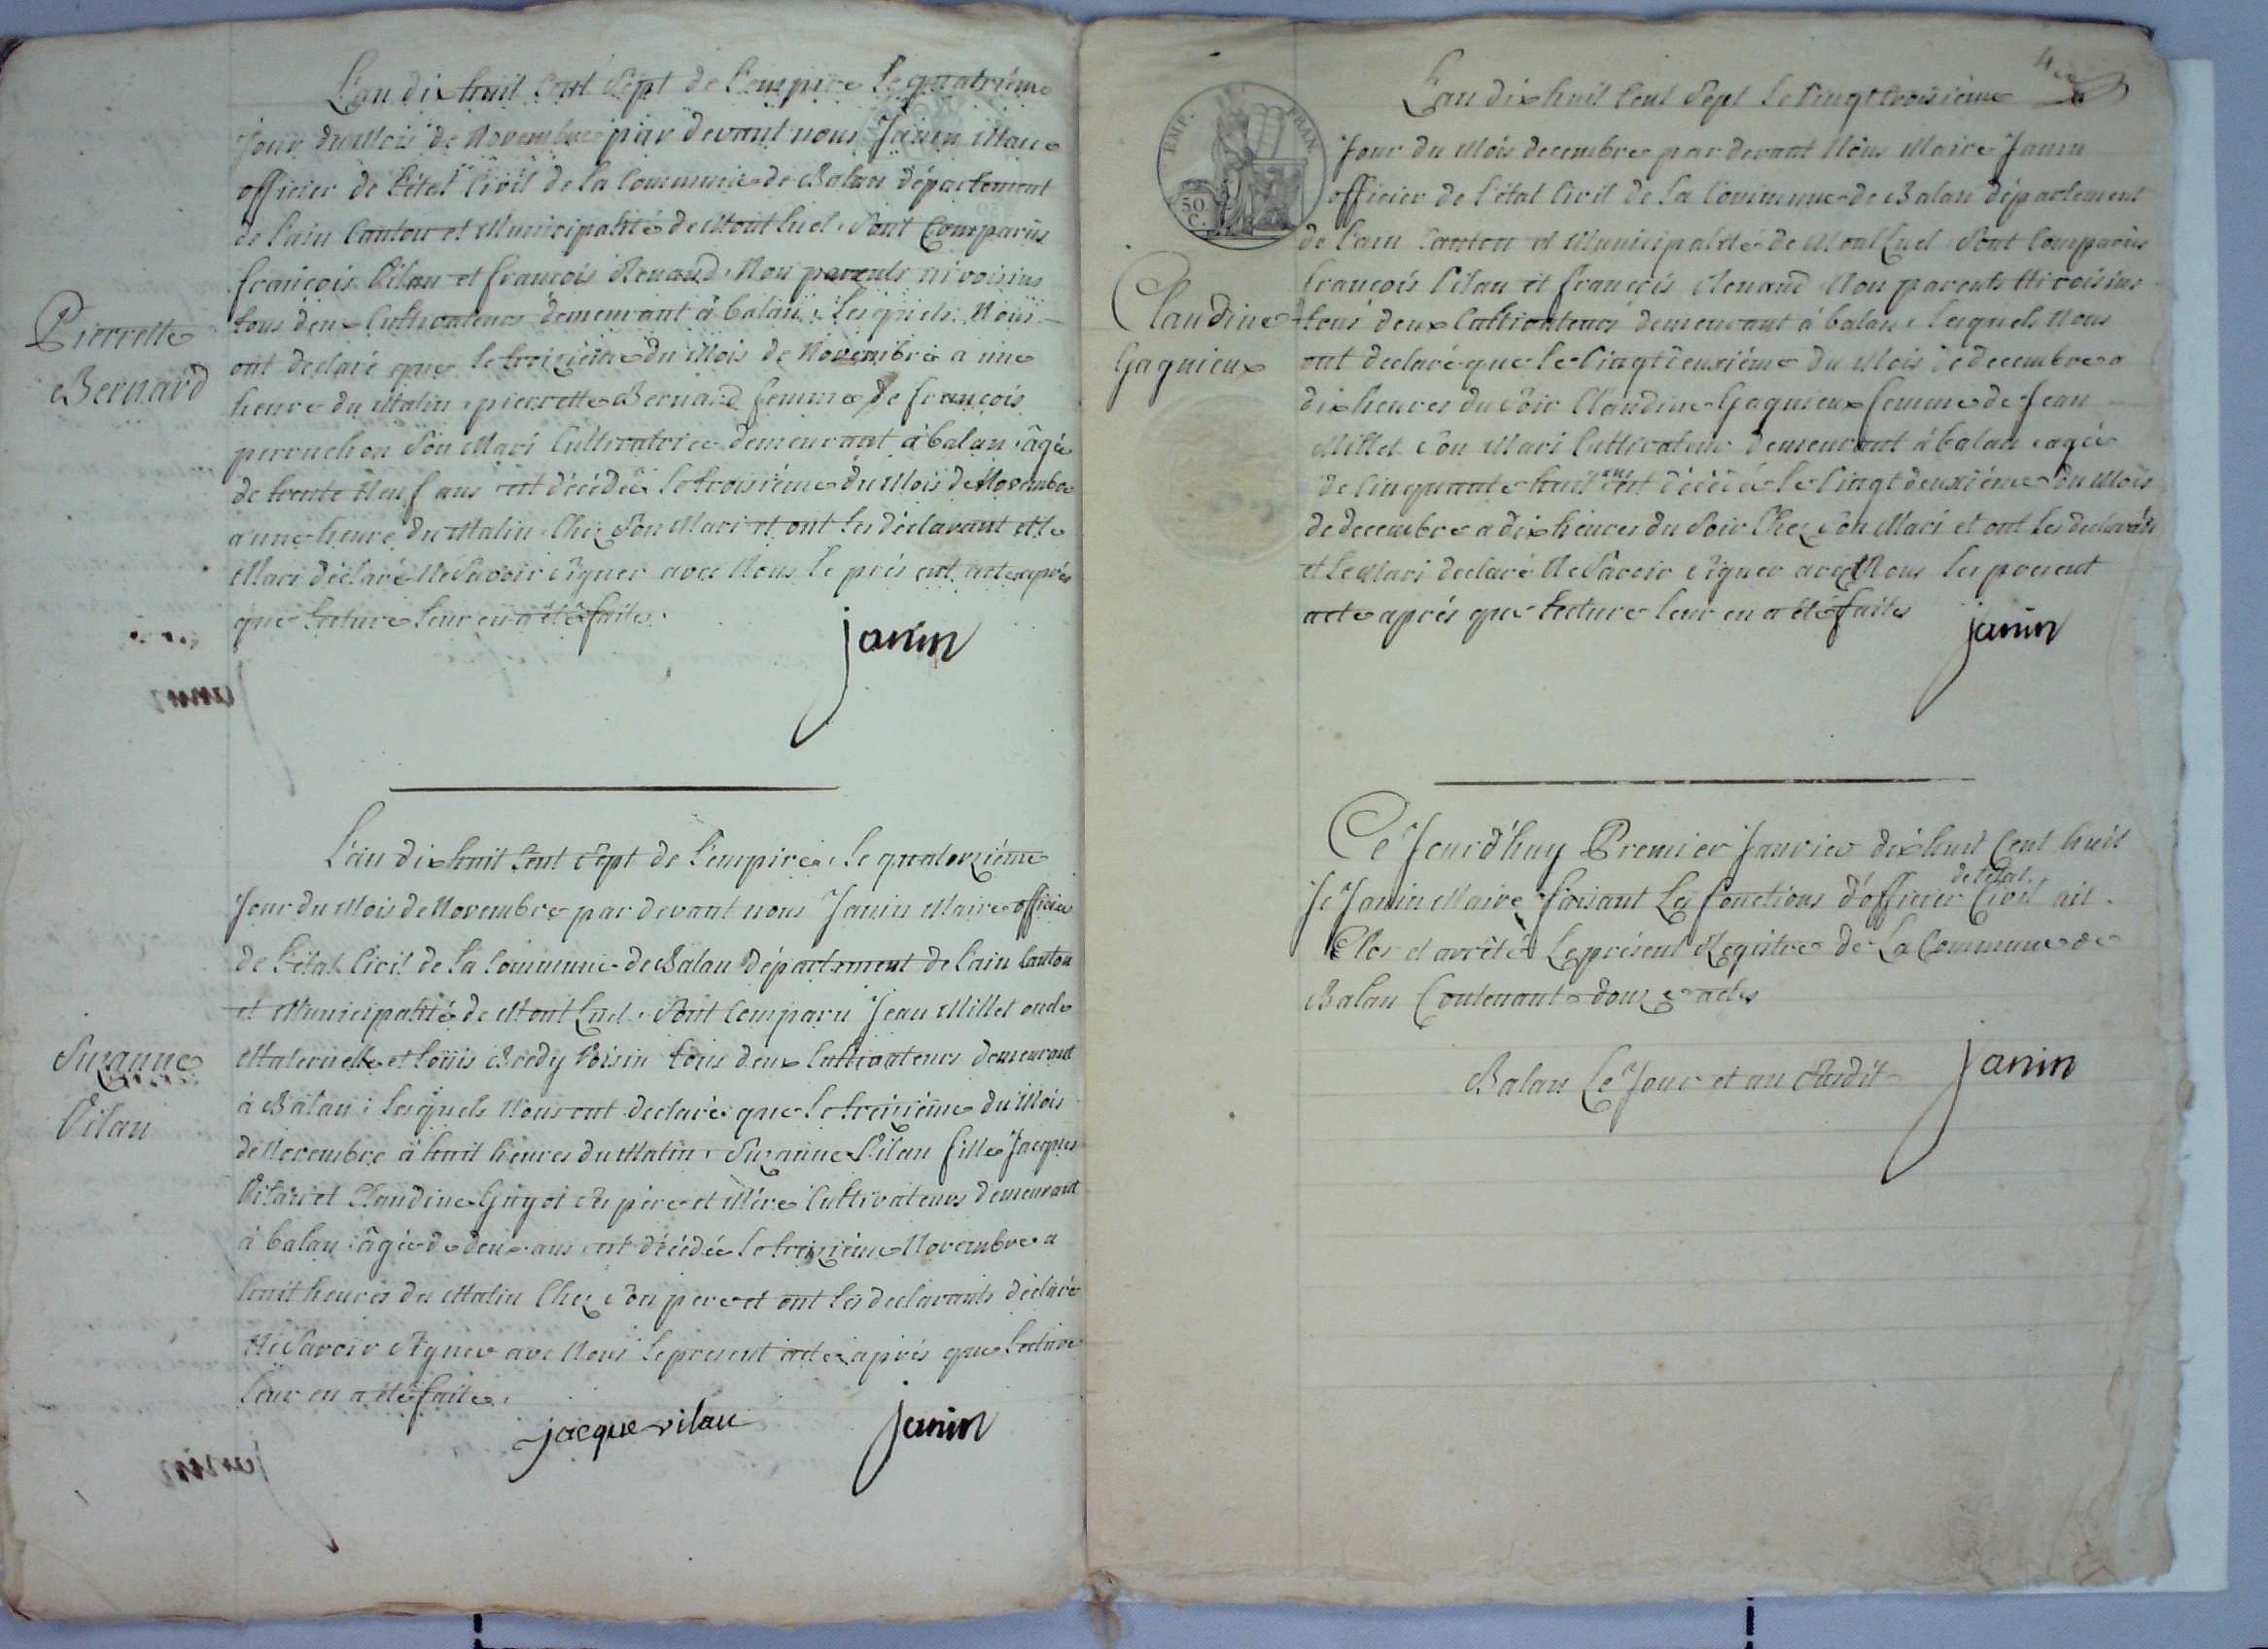 L'an dix huit cent sept de l'empire le quatrième
Jour du Mois de Novembre par devant nous Janin Maire
officier de l'état Civil de la Commune de Balan département
de l'ain Canton et Municipalité de Mont luel Sont Comparus
françois Vilan et françois Renaud Non parents ni voisins
tous deux Cultivateurs demeurant à balan, Lesquels Nous
ont declaré que le troizième du Mois de Novembre a une
heure du Matin, pierrette Bernard femme de françois
perruchon Son Mari Cultivatrice demeurant à balan âgée
de trente Neuf ans est décédée le troisième du Mois de Novembre
a une heure du Matin Chez Son Mari et ont les déclarant et le
Mari déclaré Ne Savoir Signer avec Nous le présent acte après
que Lecture leur en a été faite.
Pierrette
Bernard
janin
L'an dix huit Cent Sept de l'empire, le quatorzième
Jour du Mois de Novembre par devant nous Janin Maire officier
de l'état Civil de la Commune de Balan Département de l'ain Canton
et Municipalité de Mont Luel, Sont Comparu Jean Millet oncle
Maternelle et Loüis Bredy Voisin tous deux Cultivateurs demeurant
à Balan; lesquels Nous ont declaré que le treizième du Mois
de Novembre à huit heures du Matin, Suzanne Vilan fille Jacques
Vilan et Claudine Guyot Ses père et Mère Cultivateurs demeurant
à balan âgée de deux ans est décédée le treizième Novembre a
huit heures du Matin Chez Son pere et ont les declarants déclaré
Ne Savoir Signer avec Nous le present acte après que Lecture
leur en a été faite.
Suzanne
Vilan
jacque vilan janin
EMP. FRAN.
50
C.
L'an dix huit Cent Sept le Vingt troisième
Jour du Mois decembre par devant Nous Maire Janin
officier de l'état Civil de la Commune de Balan département
de l'ain Canton et Municipalité de Mont Luel Sont Comparus
françois Vilan et françois Renaud Non parents Ni voisins
tous deux Cultivateurs demeurant à balan, lesquels Nous
ont declaré que le Vingt deuxième du Mois de decembre a
dix heures du Soir Claudine Gagnieux femme de Jean
Millet Son Mari Cultivateur demeurant à balan agée
de Cinquante huit ans est décédée le Vingt deuxième du Mois
de decembre a dix heures du Soir Chez Son Mari et ont les declarants
et le Mari declaré Ne Savoir Signer avec Nous les present
acte après que Lecture leur en a été faite
Claudine
Gagnieux
janin
Ce Jourd'huy Premier Janvier dix huit Cent huit
Je Janin Maire faisant Les fonctions d'officier de l'état Civil ait
Clos et arrêté Le présent Registre de La Commune de
Balan Contenant douze actes
Balan Ce Jour et an Susdit janin